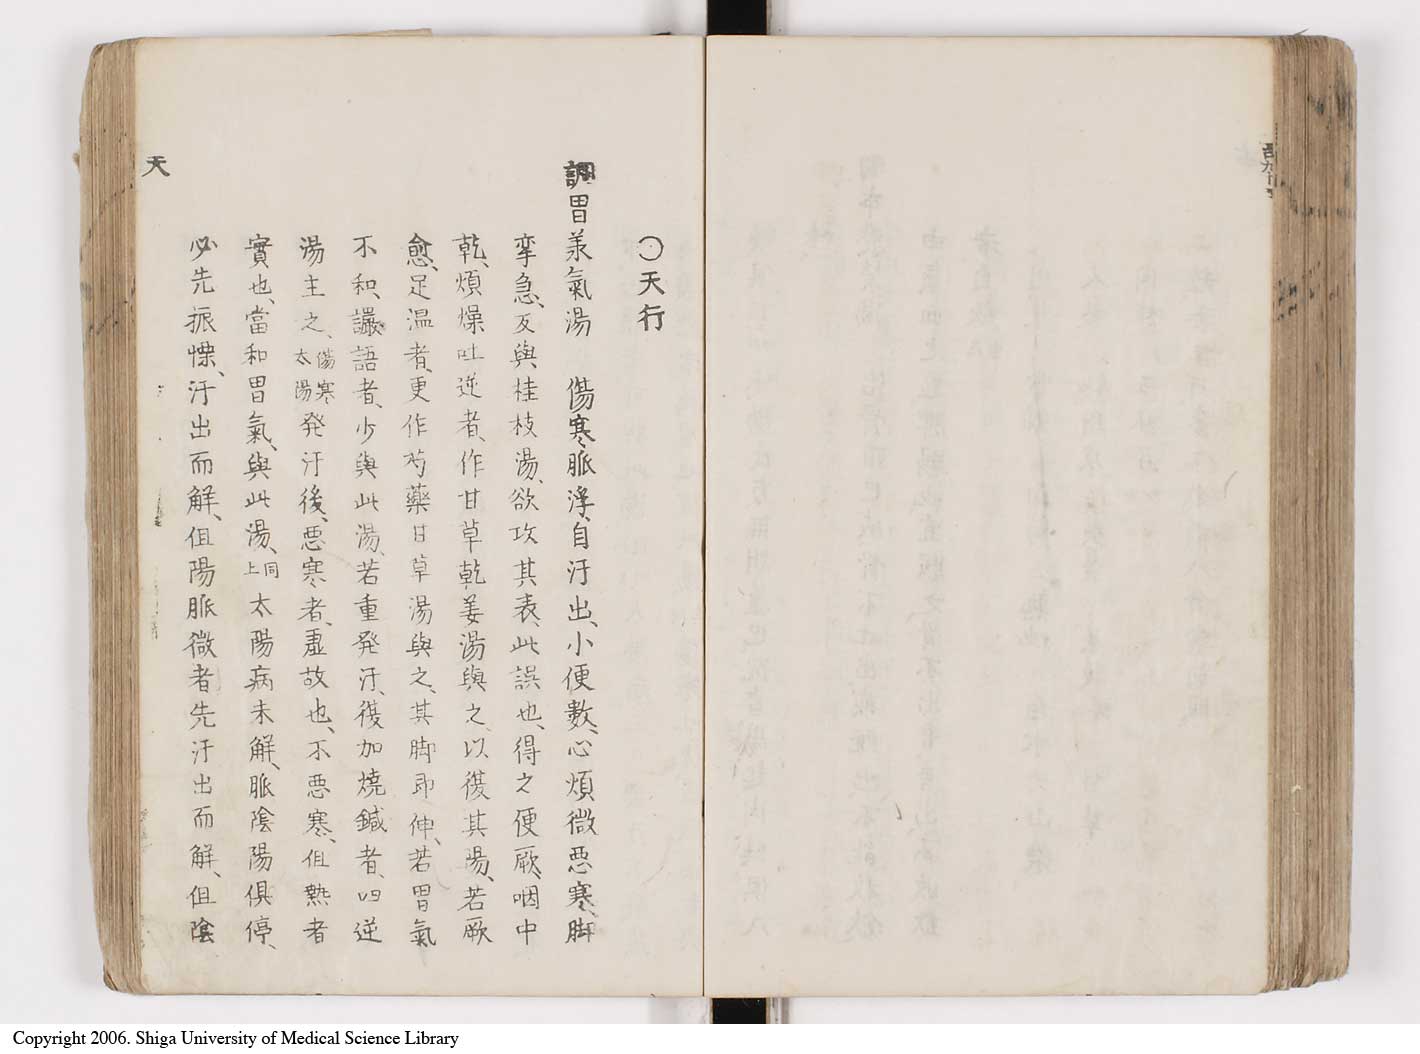 〇天行
調胃承氣湯　傷寒脈浮、自汗出、小便數、心煩微惡寒、脚
攣急、反與桂枝湯、欲攻其表、此誤也、得之便厥、咽中
乾、煩燥吐逆者、作甘草乾姜湯與之、以復其陽、若厥
愈、足温者、更作芍藥甘草湯與之、其脚即伸、若胃氣
不和、讝語者、少與此湯、若重発汗、復加燒鍼者、四逆
湯主之、傷寒太陽発汗後、惡寒者、虛故也、不惡寒、但熱者
實也、當和胃氣、與此湯、同上太陽病未解、脈陰陽俱停、
必先振慄、汗出而解、但陽脈微者先汗出而解、但陰
天
Copyright 2006. Shiga University of Medical Science Library